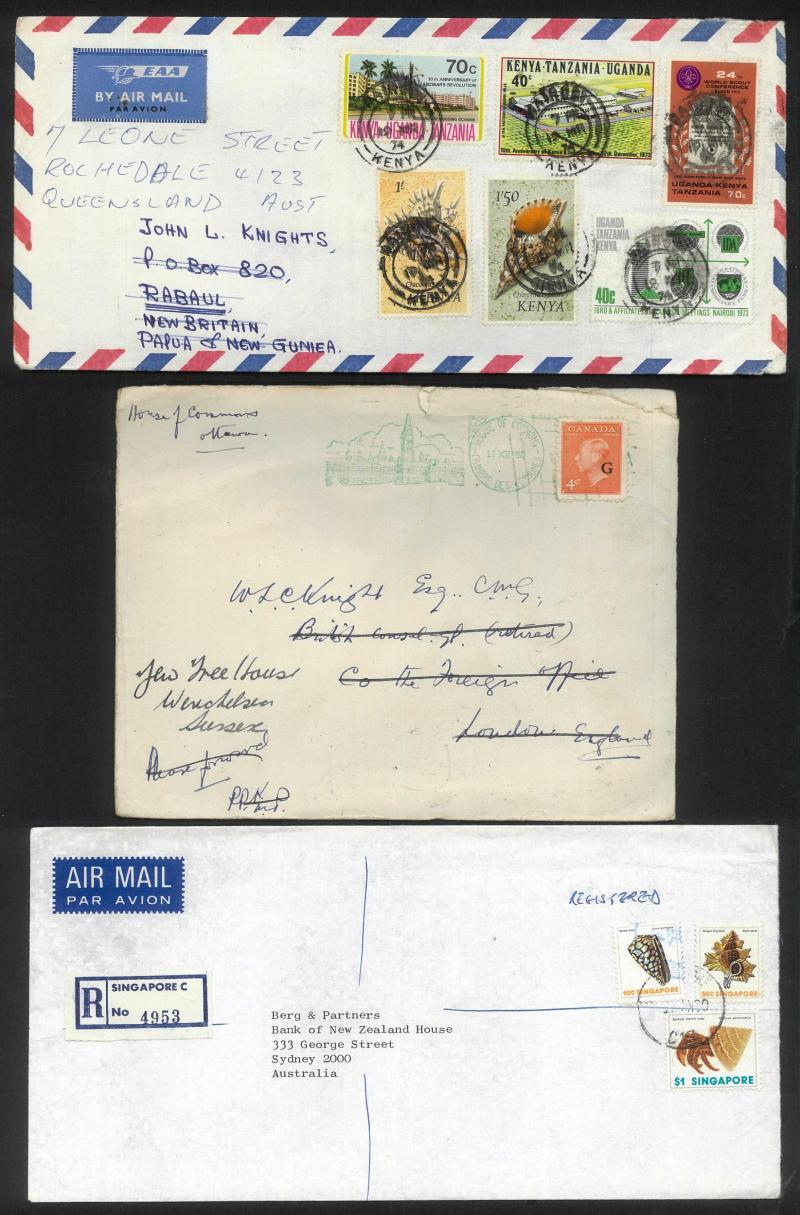 EAA
BY AIR MAIL
PAR AVION
7 LEONE STREET
ROCHEDALE 4123
QUEENSLAND AUST
JOHN L. KNIGHTS,
P.O BOX 820,
RABAUL,
NEW BRITAIN,
PAPUA & NEW GUINEA.
70c
10th ANNIVERSARY of
ZANZIBAR'S REVOLUTION
KENYA UGANDA TANZANIA
KENYA·TANZANIA·UGANDA
40c
NAIROBI
74
KENYA
24th
WORLD SCOUT
CONFERENCE
UGANDA KENYA
TANZANIA 70c
1/-
KENYA
1'50
KENYA
UGANDA
TANZANIA
KENYA
IDA
40c
IBRD & AFFILIATES MEETINGS NAIROBI 1973
House of Commons
Ottawa.
CANADA
4c
G
W L C Knight Esq., C.M.G.,
British Consul-Gl. (retired)
Co the Foreign Office
London England
Yew Tree House
Winchelsea
Sussex
Please forward
AIR MAIL
PAR AVION
REGISTERED
R
SINGAPORE C
No 4953
40c SINGAPORE
50c SINGAPORE
$1 SINGAPORE
Berg & Partners
Bank of New Zealand House
333 George Street
Sydney 2000
Australia